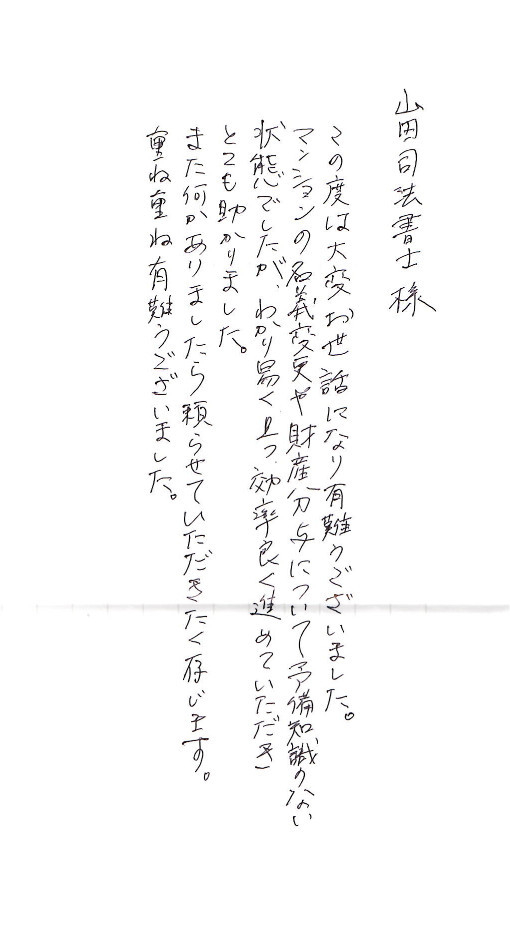 山田司法書士 様
この度は大変お世話になり有難うございました。
マンションの名義変更や財産分与について予備知識のない
状態でしたが、わかり易く且つ効率良く進めていただき
とても助かりました。
また何かありましたら頼らせていただきたく存じます。
重ね重ね有難うございました。